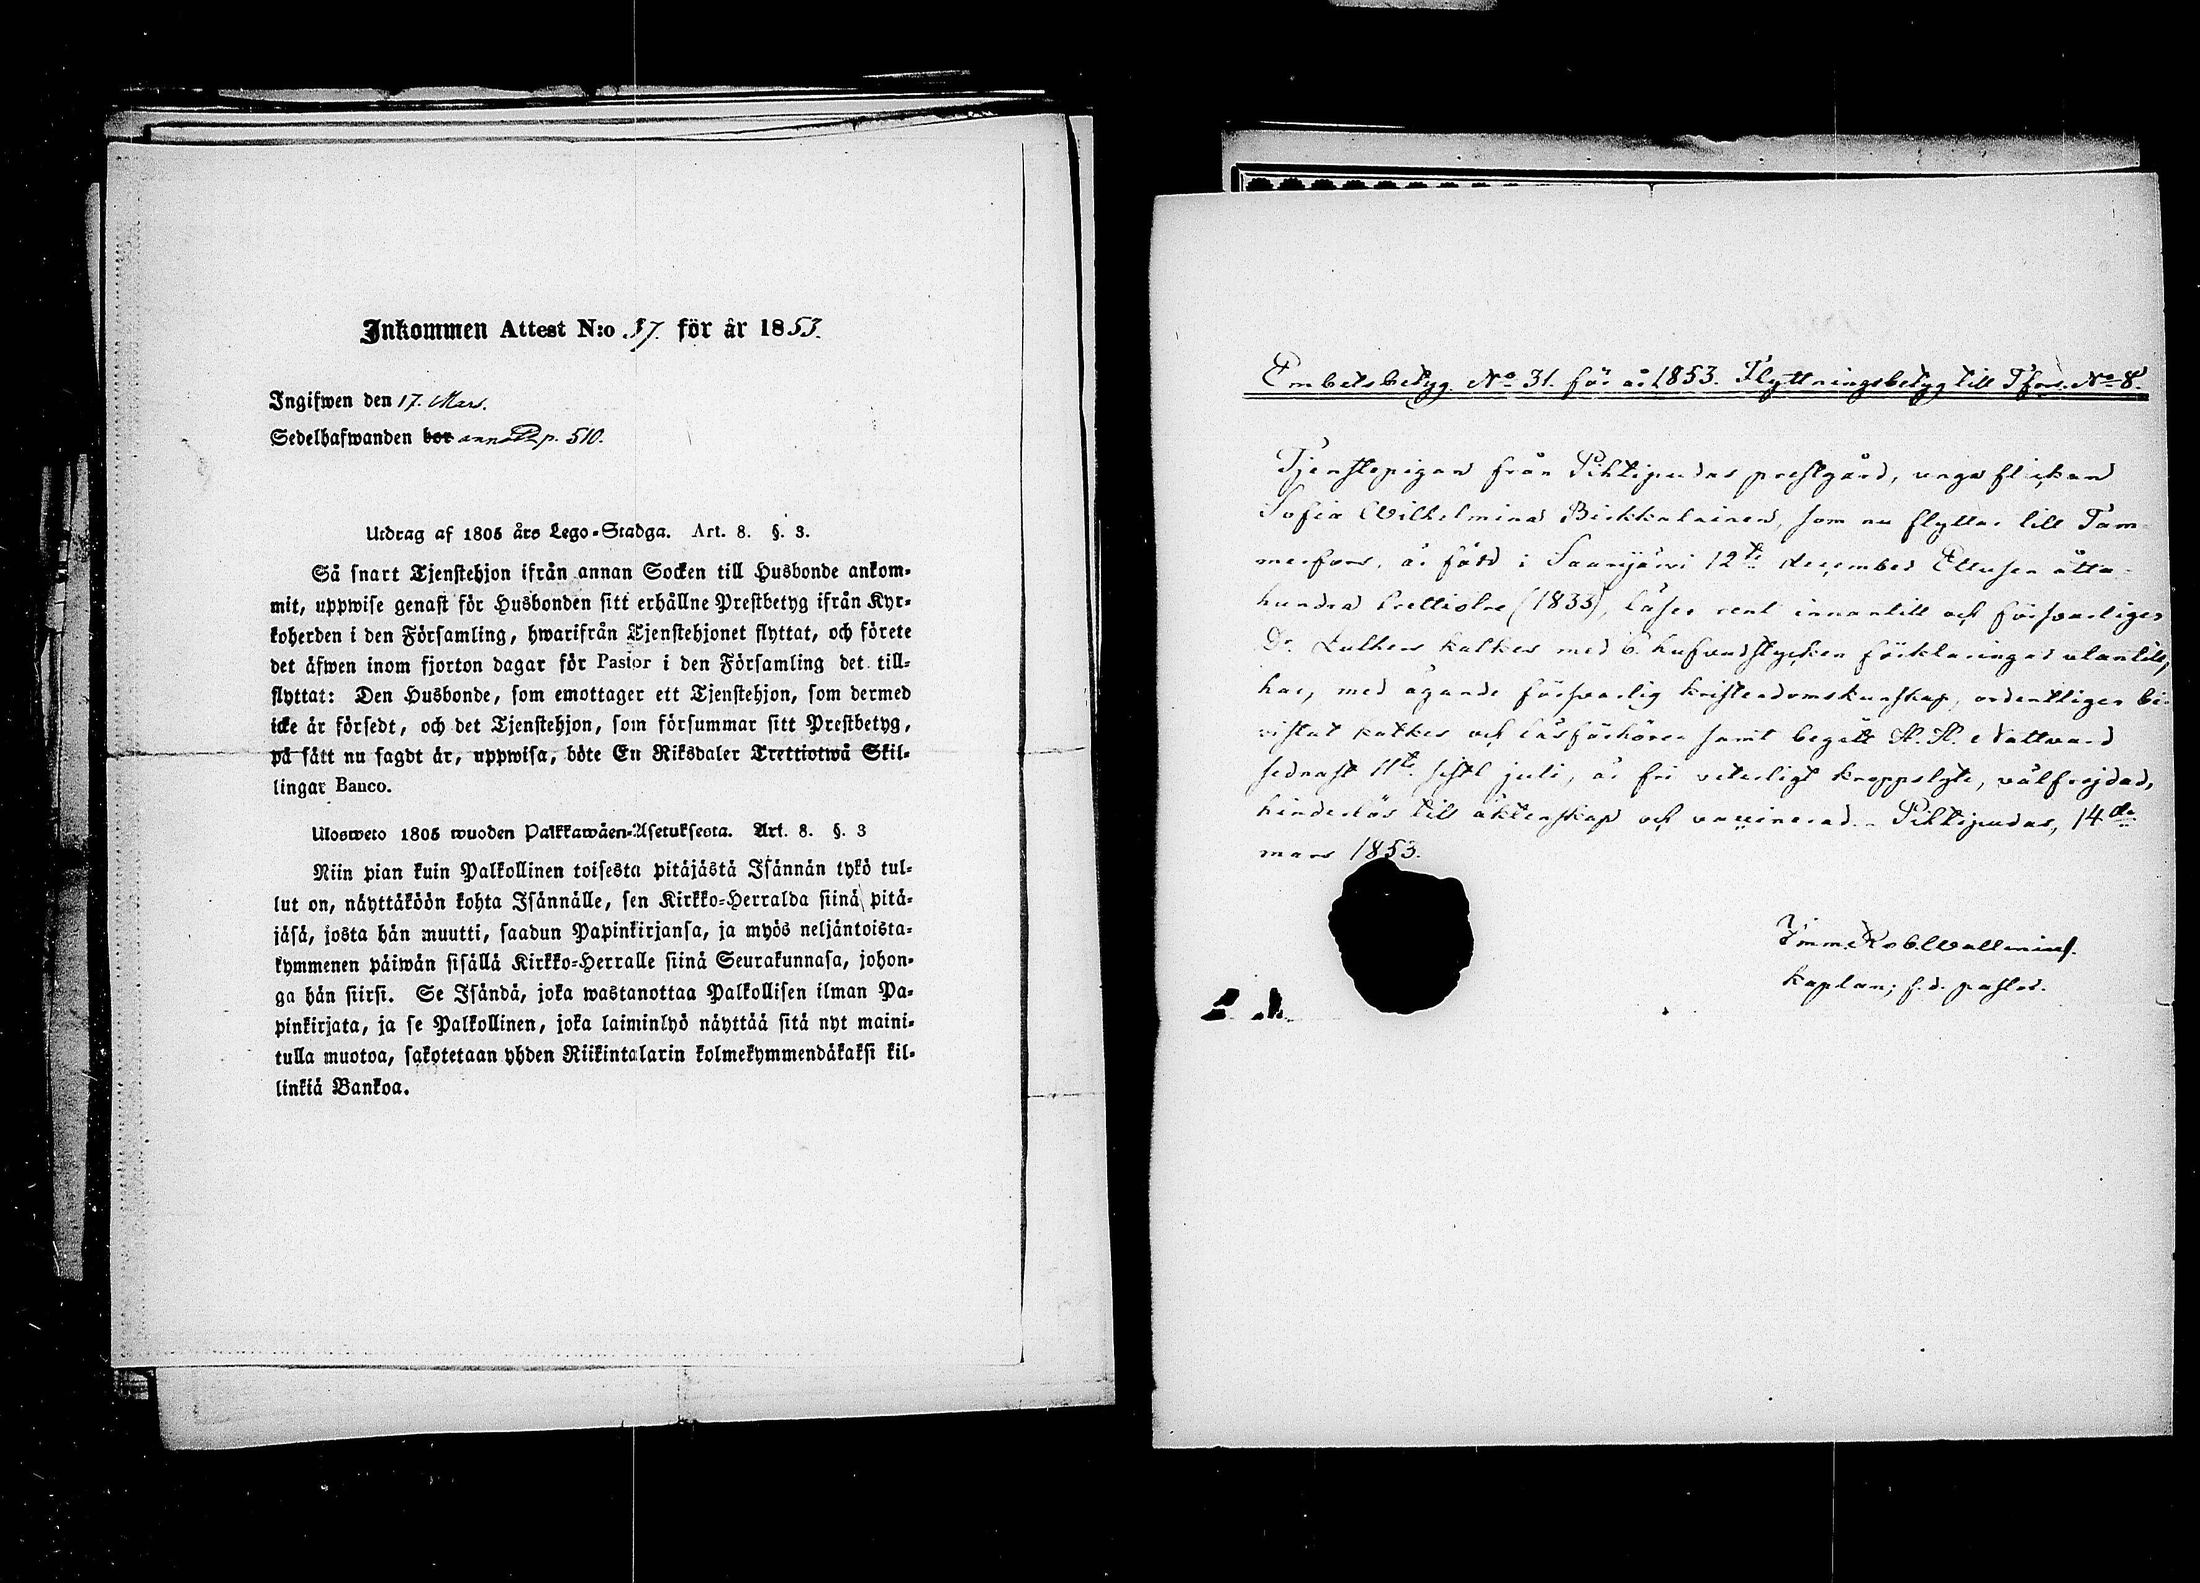 Inkommen Attest N:o 37. för år 1853.
Ingifwen den 17. Mars.
Sedelhafwanden bor anno p. 510.
Utdrag af 1805 års Lego-Stadga. Art. 8. §. 3.
Så snart Tjenstehjon ifrån annan Socken till Husbonde ankom-
mit, uppwise genast för Husbonden sitt erhållne Prestbetyg ifrån Kyr-
koherden i den Församling, hwarifrån Tjenstehjonet flyttat, och förete
det äfwen inom fjorton dagar för Pastor i den Församling det till-
flyttat: Den Husbonde, som emottager ett Tjenstehjon, som dermed
icke är försedt, och det Tjenstehjon, som försummar sitt Prestbetyg,
på sätt nu sagdt är, uppwisa, böte En Riksdaler Trettiotwå Skil-
lingar Banco.
Ulosweto 1805 wuoden Palkkawäen-Asetuksesta. Art. 8. §. 3
Niin pian kuin Palkollinen toisesta pitäjästä Isännän tykö tul-
lut on, näyttäköön kohta Isännälle, sen Kirkko-Herralda siinä pitä-
jäsä, josta hän muutti, saadun Papinkirjansa, ja myös neljäntoista-
kymmenen päiwän sisällä Kirkko-Herralle siinä Seurakunnasa, johon-
ga hän siirsi. Se Isändä, joka wastanottaa Palkollisen ilman Pa-
pinkirjata, ja se Palkollinen, joka laiminlyö näyttää sitä nyt maini-
tulla muotoa, sakotetaan yhden Riikintalarin kolmekymmendäkaksi kil-
linkiä Bankoa.
Embetsbetyg No 31. för år 1853. Flyttningsbetyg till Tfors. No 8.
Tjenstepigan från Pihtipudas prestgård, unga flickan
Sofia Wilhelmina Birkkalainen, som nu flyttar till Tam-
merfors, är född i Saarijärvi 12te december Ettusen åtta-
hundra trettiotre (1833), läser rent innantill och försvarligen
Dr. Luthers katkes med 6. hufvudstycken förklaringar utantill,
har, med ägande försvarlig kristendomskunskap, ordentligen bi-
vistat katkes och läsförhören samt begått H. H. Nattvard
sednast 11te sistl juli, är fri veterligt kroppslyte, välfrejdad,
hinderlös till äktenskap och vaccinerad. - Pihtipudas, 14de
mars 1853.
Imm. Rob. Wallenius.
kaplan; f. d. pastor.